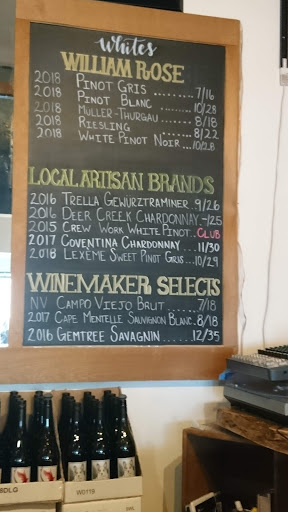 Whites
WILLIAM ROSE
2018 PINOT GRIS ......... 7/16
2018 PINOT BLANC ......... 10/28
2018 MULLER-THURGAU ...... 8/18
2018 RIESLING ........... 8/22
2018 WHITE PINOT NOIR ... 10/28
LOCAL ARTISAN BRANDS
2016 TRELLA GEWURZTRAMINER.. 9/26
2016 DEER CREEK CHARDONNAY. -/25
2015 CREW WORK WHITE PINOT.. CLUB
2017 COVENTINA CHARDONNAY ... 11/30
2018 LEXÈME SWEET PINOT GRIS.. 10/29
WINEMAKER SELECTS
NV CAMPO VIEJO BRUT ...... 7/18
2017 CAPE MENTELLE SAUVIGNON BLANC. 8/18
2016 GEMTREE SAVAGNIN ...... 12/35
W0118